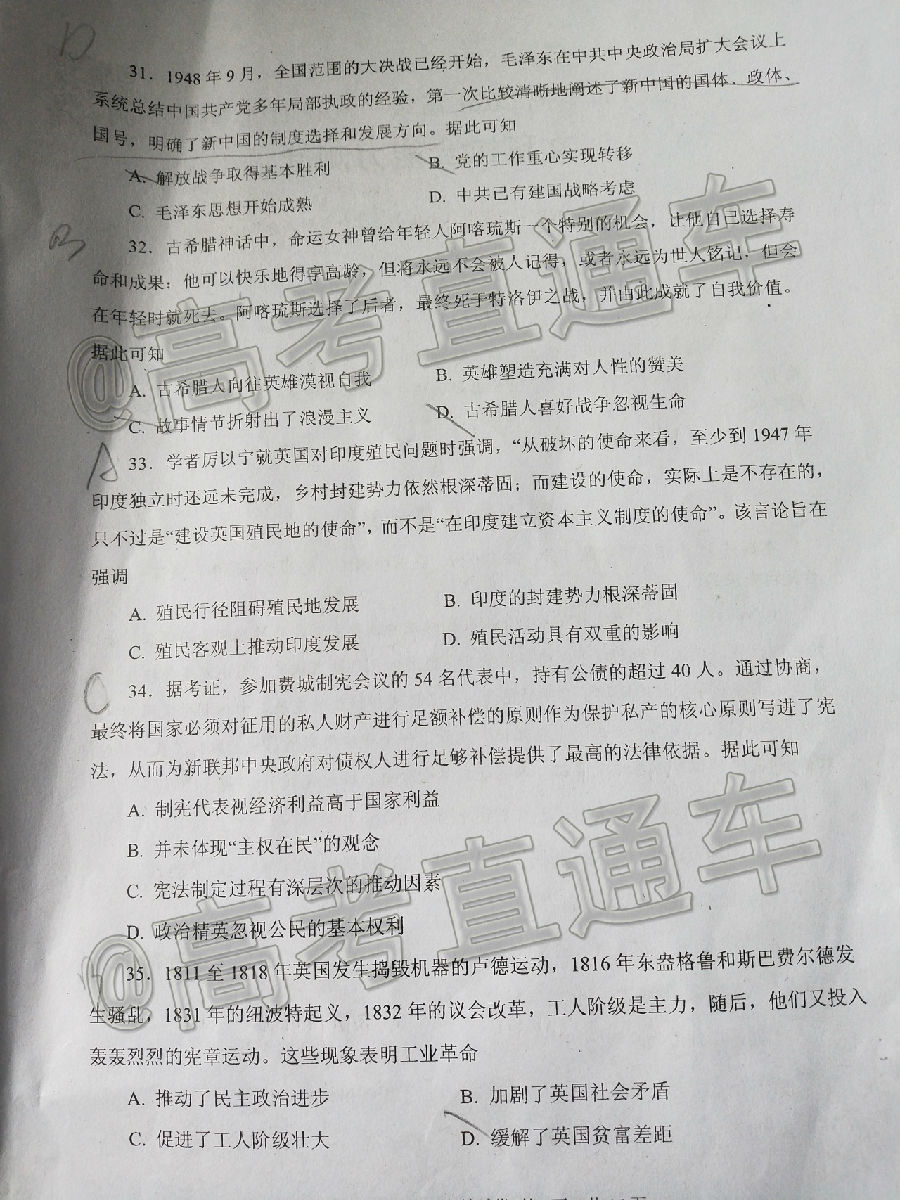 D
31. 1948 年 9 月，全国范围的大决战已经开始，毛泽东在中共中央政治局扩大会议上
系统总结中国共产党多年局部执政的经验，第一次比较清晰地阐述了新中国的国体、政体、
国号，明确了新中国的制度选择和发展方向。据此可知
A. 解放战争取得基本胜利 B. 党的工作重心实现转移
C. 毛泽东思想开始成熟 D. 中共已有建国战略考虑
B
32. 古希腊神话中，命运女神曾给年轻人阿喀琉斯一个特别的机会，让他自己选择寿
命和成果：他可以快乐地得享高龄，但将永远不会被人记得，或者永远为世人铭记，但会
在年轻时就死去。阿喀琉斯选择了后者，最终死于特洛伊之战，并由此成就了自我价值。
据此可知
A. 古希腊人向往英雄漠视自我 B. 英雄塑造充满对人性的赞美
C. 故事情节折射出了浪漫主义 D. 古希腊人喜好战争忽视生命
A
33. 学者厉以宁就英国对印度殖民问题时强调，“从破坏的使命来看，至少到 1947 年
印度独立时还远未完成，乡村封建势力依然根深蒂固；而建设的使命，实际上是不存在的，
只不过是“建设英国殖民地的使命”，而不是“在印度建立资本主义制度的使命”。该言论旨在
强调
A. 殖民行径阻碍殖民地发展 B. 印度的封建势力根深蒂固
C. 殖民客观上推动印度发展 D. 殖民活动具有双重的影响
C
34. 据考证，参加费城制宪会议的 54 名代表中，持有公债的超过 40 人。通过协商，
最终将国家必须对征用的私人财产进行足额补偿的原则作为保护私产的核心原则写进了宪
法，从而为新联邦中央政府对债权人进行足够补偿提供了最高的法律依据。据此可知
A. 制宪代表视经济利益高于国家利益
B. 并未体现“主权在民”的观念
C. 宪法制定过程有深层次的推动因素
D. 政治精英忽视公民的基本权利
35. 1811 至 1818 年英国发生捣毁机器的卢德运动，1816 年东盎格鲁和斯巴费尔德发
生骚乱，1831 年的纽波特起义，1832 年的议会改革，工人阶级是主力，随后，他们又投入
轰轰烈烈的宪章运动。这些现象表明工业革命
A. 推动了民主政治进步 B. 加剧了英国社会矛盾
C. 促进了工人阶级壮大 D. 缓解了英国贫富差距
@高考直通车
@高考直通车